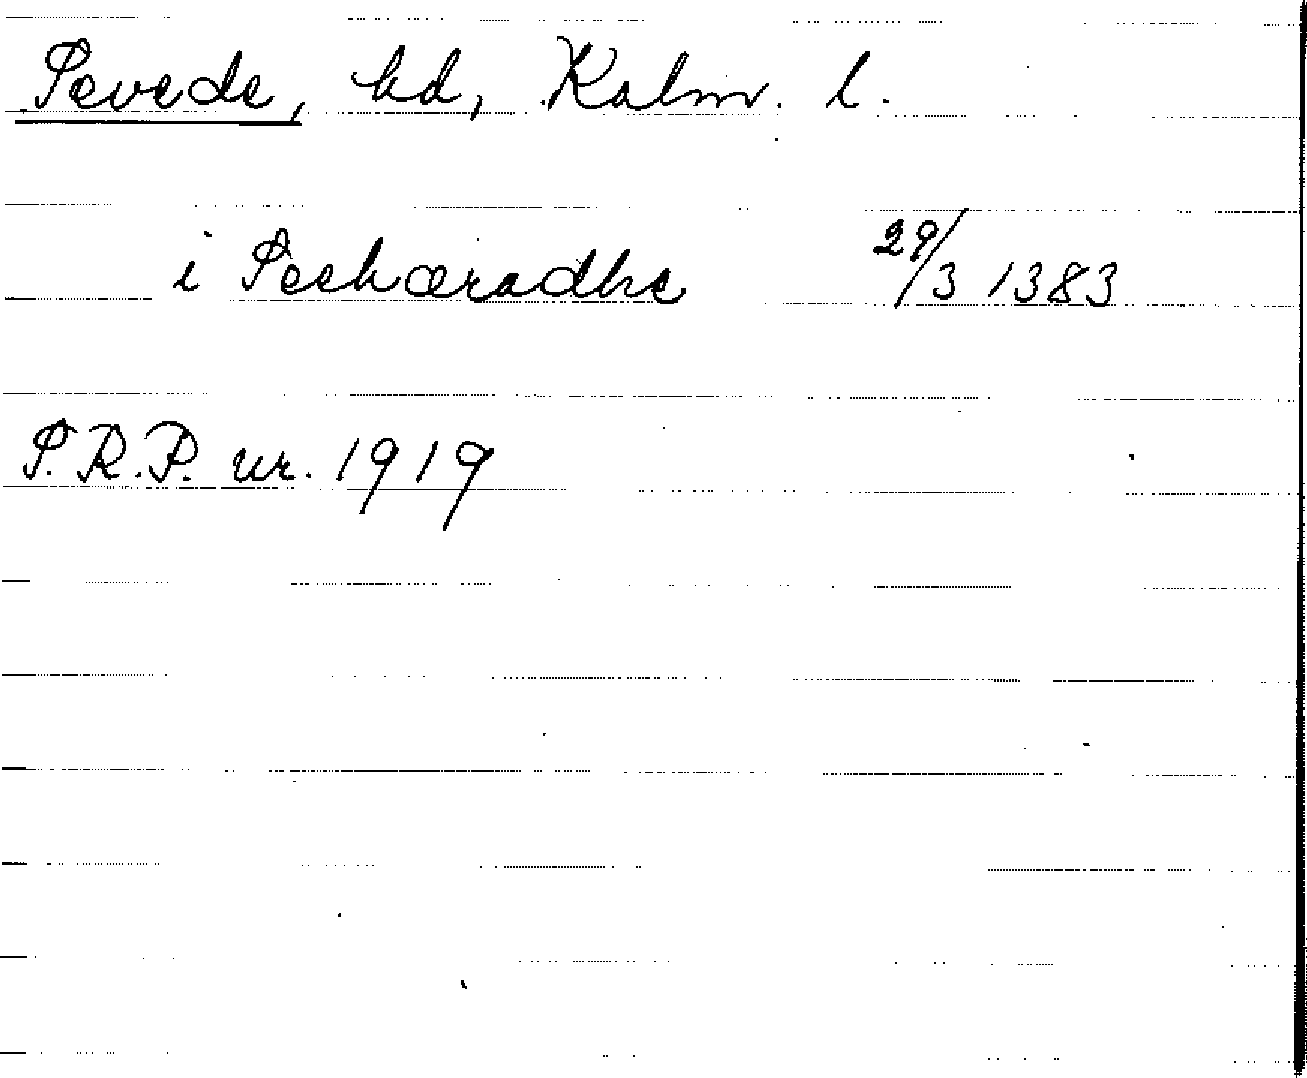 Sevede, hd, Kalm. l.
i Seehæradhe 29/3 1383
S.R.P. nr. 1919